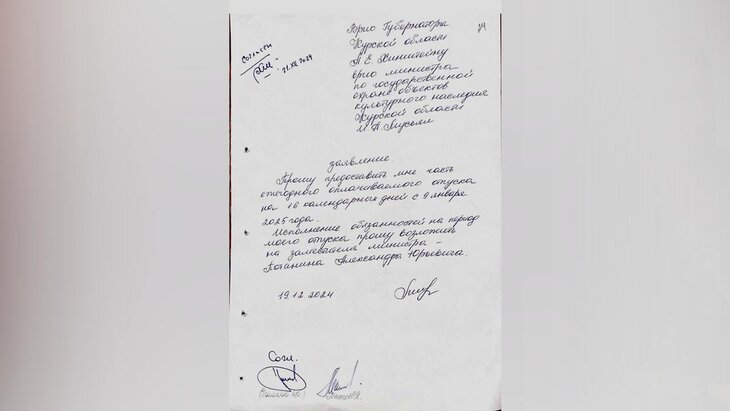 Врио Губернатора
Курской области
А.Е. Хинштейну
врио министра
по государственной
охране объектов
культурного наследия
Курской области
И.П. Мусьял
Согласен
21.XII.2024
заявление.
Прошу предоставить мне часть
ежегодного оплачиваемого отпуска
на 16 календарных дней с 9 января
2025 года.
Исполнение обязанностей на период
моего отпуска прошу возложить
на заместителя министра -
Александра Юрьевича.
19.12.2024
Согл.